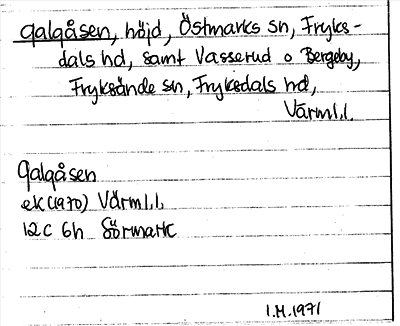 Galgåsen, höjd, Östmarks sn, Fryks-
dals hd, samt Vasserud o Bergeby,
Fryksände sn, Fryksdals hd,
Värml.l.
Galgåsen
ek(1970) Värml.l.
12C 6h Sörmark
I.H.1971